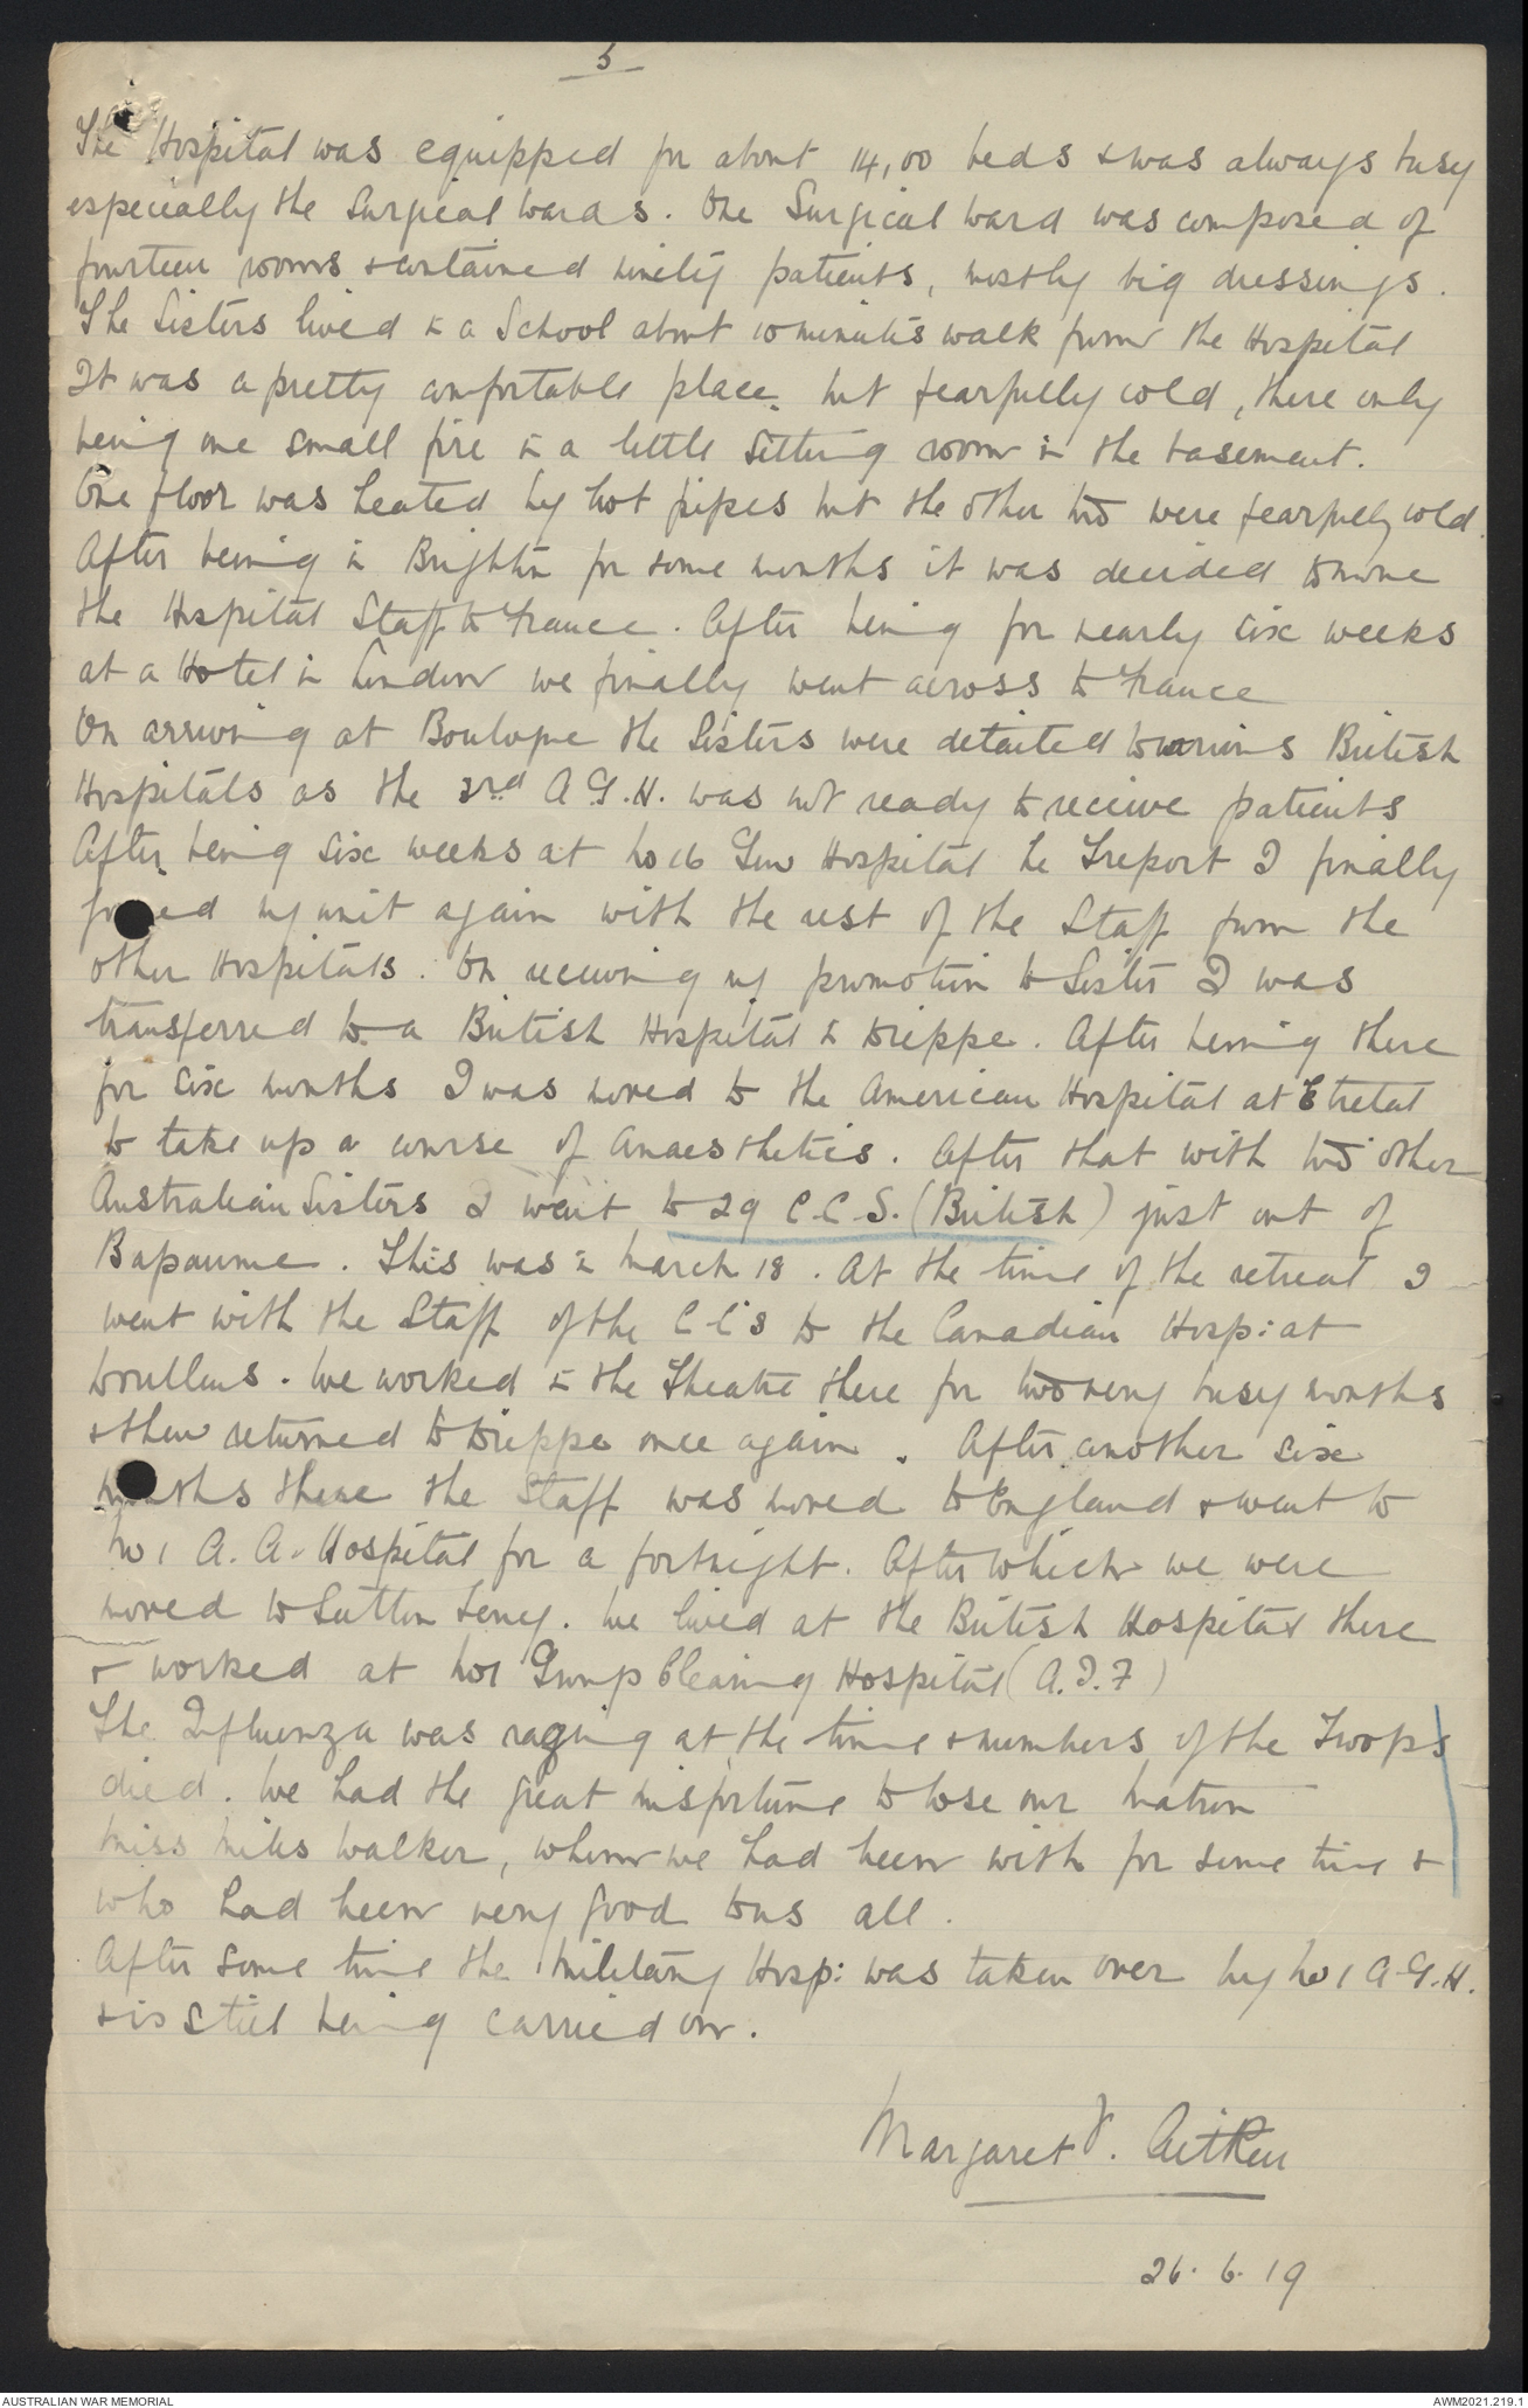 5
The Hospital was equipped for about 14,00 beds & was always busy
especially the Surgical wards. One Surgical ward was composed of
fourteen rooms & contained ninety patients, mostly big dressings.
The Sisters lived in a School about 10 minutes walk from the Hospital
It was a pretty comfortable place. but fearfully cold, there only
being one small fire in a little sitting room in the basement.
One floor was heated by hot pipes but the other two were fearfully cold.
After being in Brighton for some months it was decided to move
the Hospital Staff to France. After being for nearly six weeks
at a Hotel in London we finally went across to France
On arriving at Boulogne the Sisters were detailed to various British
Hospitals as the 3rd A.G.H. was not ready to receive patients
After being six weeks at No 16 Gen Hospital Le Treport I finally
joined my unit again with the rest of the Staff from the
other Hospitals. On receiving my promotion to Sister I was
transferred to a British Hospital in Dieppe. After being there
for six months I was moved to the American Hospital at Etretat
to take up a course of Anaesthetics. After that with two other
Australian Sisters I went to 29 C.C.S. (British) just out of
Bapaume. This was in March 18. At the time of the retreat I
went with the Staff of the C.C.S to the Canadian Hosp: at
Doullens. We worked in the Theatre there for two very busy months
& then returned to Dieppe once again. After another six
months there the Staff was moved to England & went to
No 1 A. A. Hospital for a fortnight. After which we were
moved to Sutton Veney. We lived at the British Hospital there
& worked at No 1 Group Clearing Hospital (A.I.F)
The Influenza was raging at the time & numbers of the Troops
died. We had the great misfortune to lose our Matron
Miss Miles Walker, whom we had been with for some time &
who had been very good to us all.
After some time the Military Hosp: was taken over by No 1 A.G.H.
& is still being carried on.
Margaret J. Aitken
26. 6. 19
AUSTRALIAN WAR MEMORIAL
AWM2021.219.1